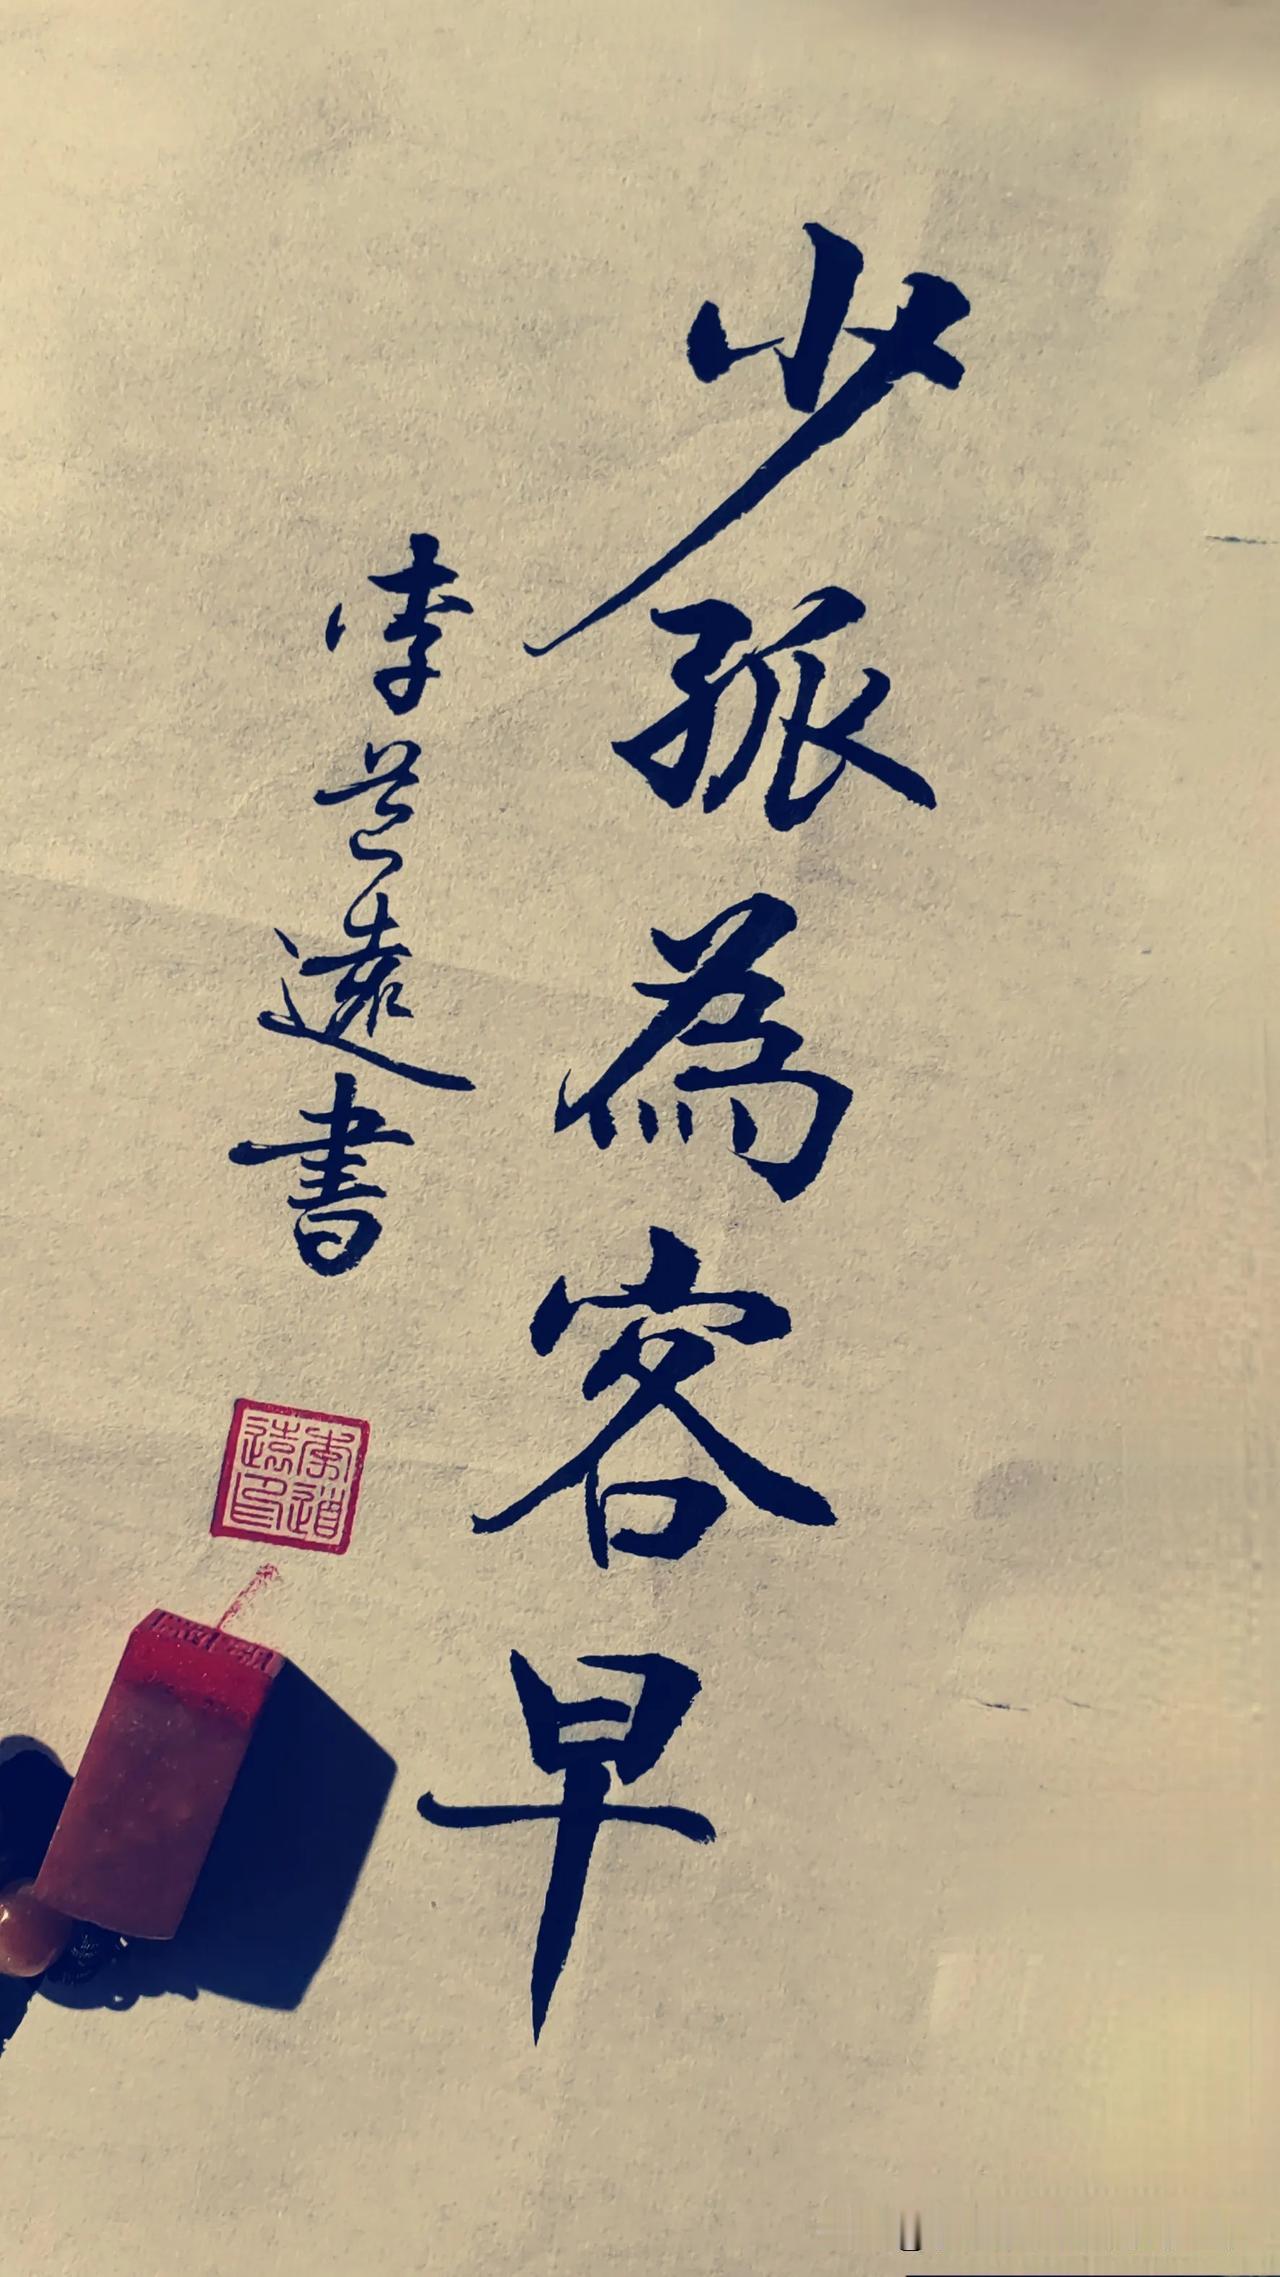 少孤為客早
李道遠書
李道遠印